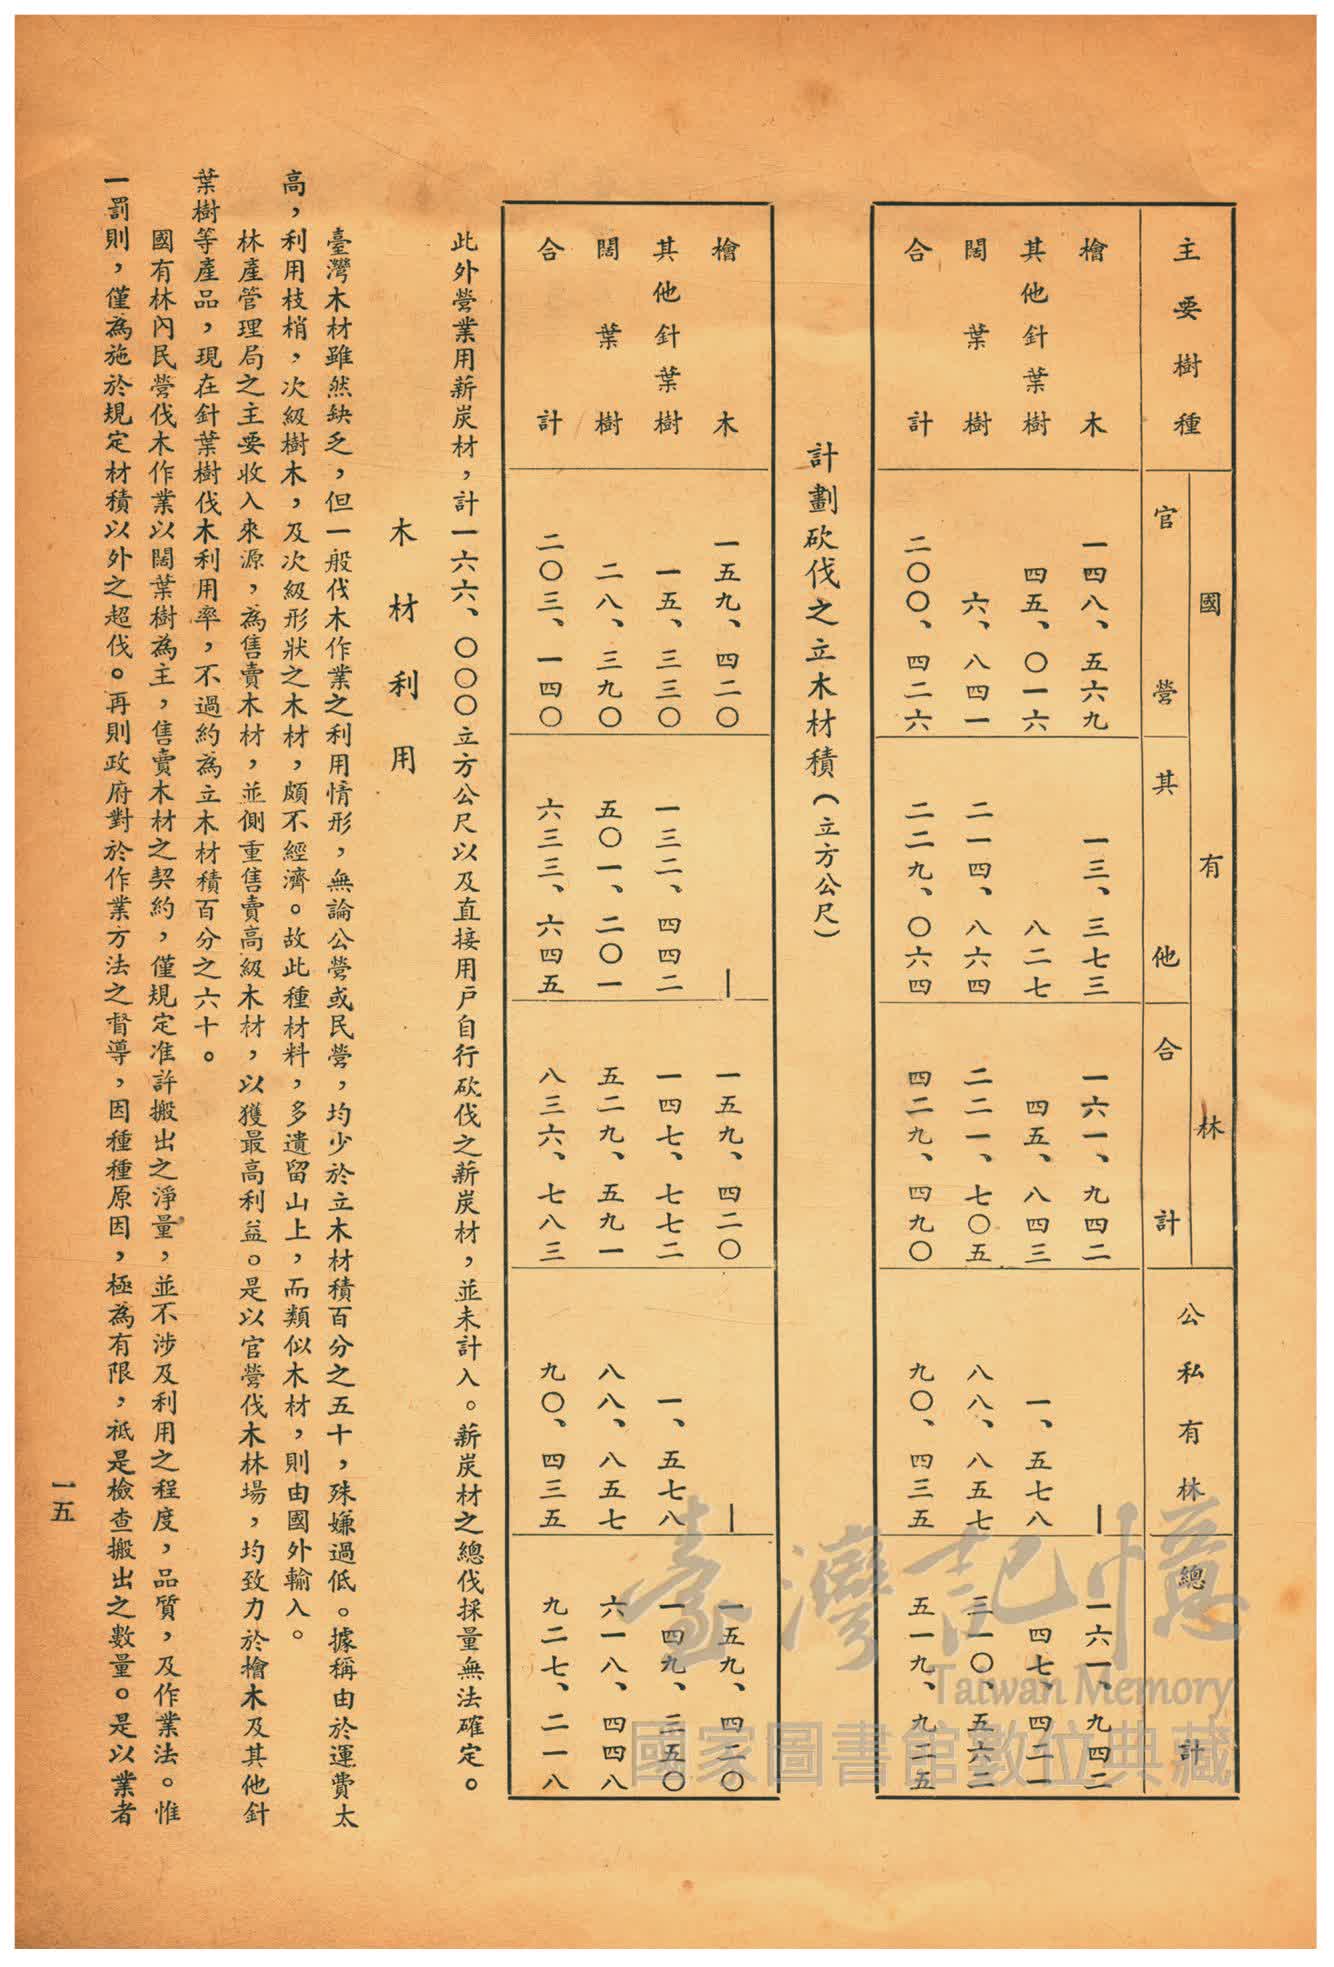 主要樹種
國有林
官營
其他
合計
公私有林
總計
檜木 一四八、五六九 一三、三七三 一六一、九四二 — 一六一、九四二
其他針葉樹 四五、〇一六 八二七 四五、八四三 一、五七八 四七、四二一
闊葉樹 六、八四一 二一四、八六四 二二一、七〇五 八八、八五七 三一〇、五六二
合計 二〇〇、四二六 二二九、〇六四 四二九、四九〇 九〇、四三五 五一九、九二五
計劃砍伐之立木材積（立方公尺）
檜木 一五九、四二〇 — 一五九、四二〇 — 一五九、四二〇
其他針葉樹 一五、三三〇 一三二、四四二 一四七、七七二 一、五七八 一四九、三五〇
闊葉樹 二八、三九〇 五〇一、二〇一 五二九、五九一 八八、八五七 六一八、四四八
合計 二〇三、一四〇 六三三、六四五 八三六、七八三 九〇、四三五 九二七、二一八
此外營業用薪炭材，計一六六、〇〇〇立方公尺以及直接用戶自行砍伐之薪炭材，並未計入。薪炭材之總伐採量無法確定。
木材利用
臺灣木材雖然缺乏，但一般伐木作業之利用情形，無論公營或民營，均少於立木材積百分之五十，殊嫌過低。據稱由於運費太
高，利用枝梢，次級樹木，及次級形狀之木材，頗不經濟。故此種材料，多遺留山上，而類似木材，則由國外輸入。
林產管理局之主要收入來源，為售賣木材，並側重售賣高級木材，以獲最高利益。是以官營伐木林場，均致力於檜木及其他針
葉樹等產品，現在針葉樹伐木利用率，不過約為立木材積百分之六十。
國有林內民營伐木作業以闊葉樹為主，售賣木材之契約，僅規定准許搬出之淨量，並不涉及利用之程度，品質，及作業法。惟
一罰則，僅為施於規定材積以外之超伐。再則政府對於作業方法之督導，因種種原因，極為有限，祇是檢查搬出之數量。是以業者
一五
臺灣記憶
Taiwan Memory
國家圖書館數位典藏